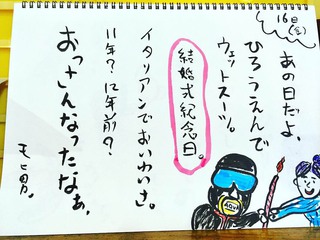 16日(金)
あの日だよ、
ひろうえんで
ウェットスーツ。
結婚式紀念日。
イタリアンでおいわいさ。
11年?12年前の?
おっさんなったなぁ。